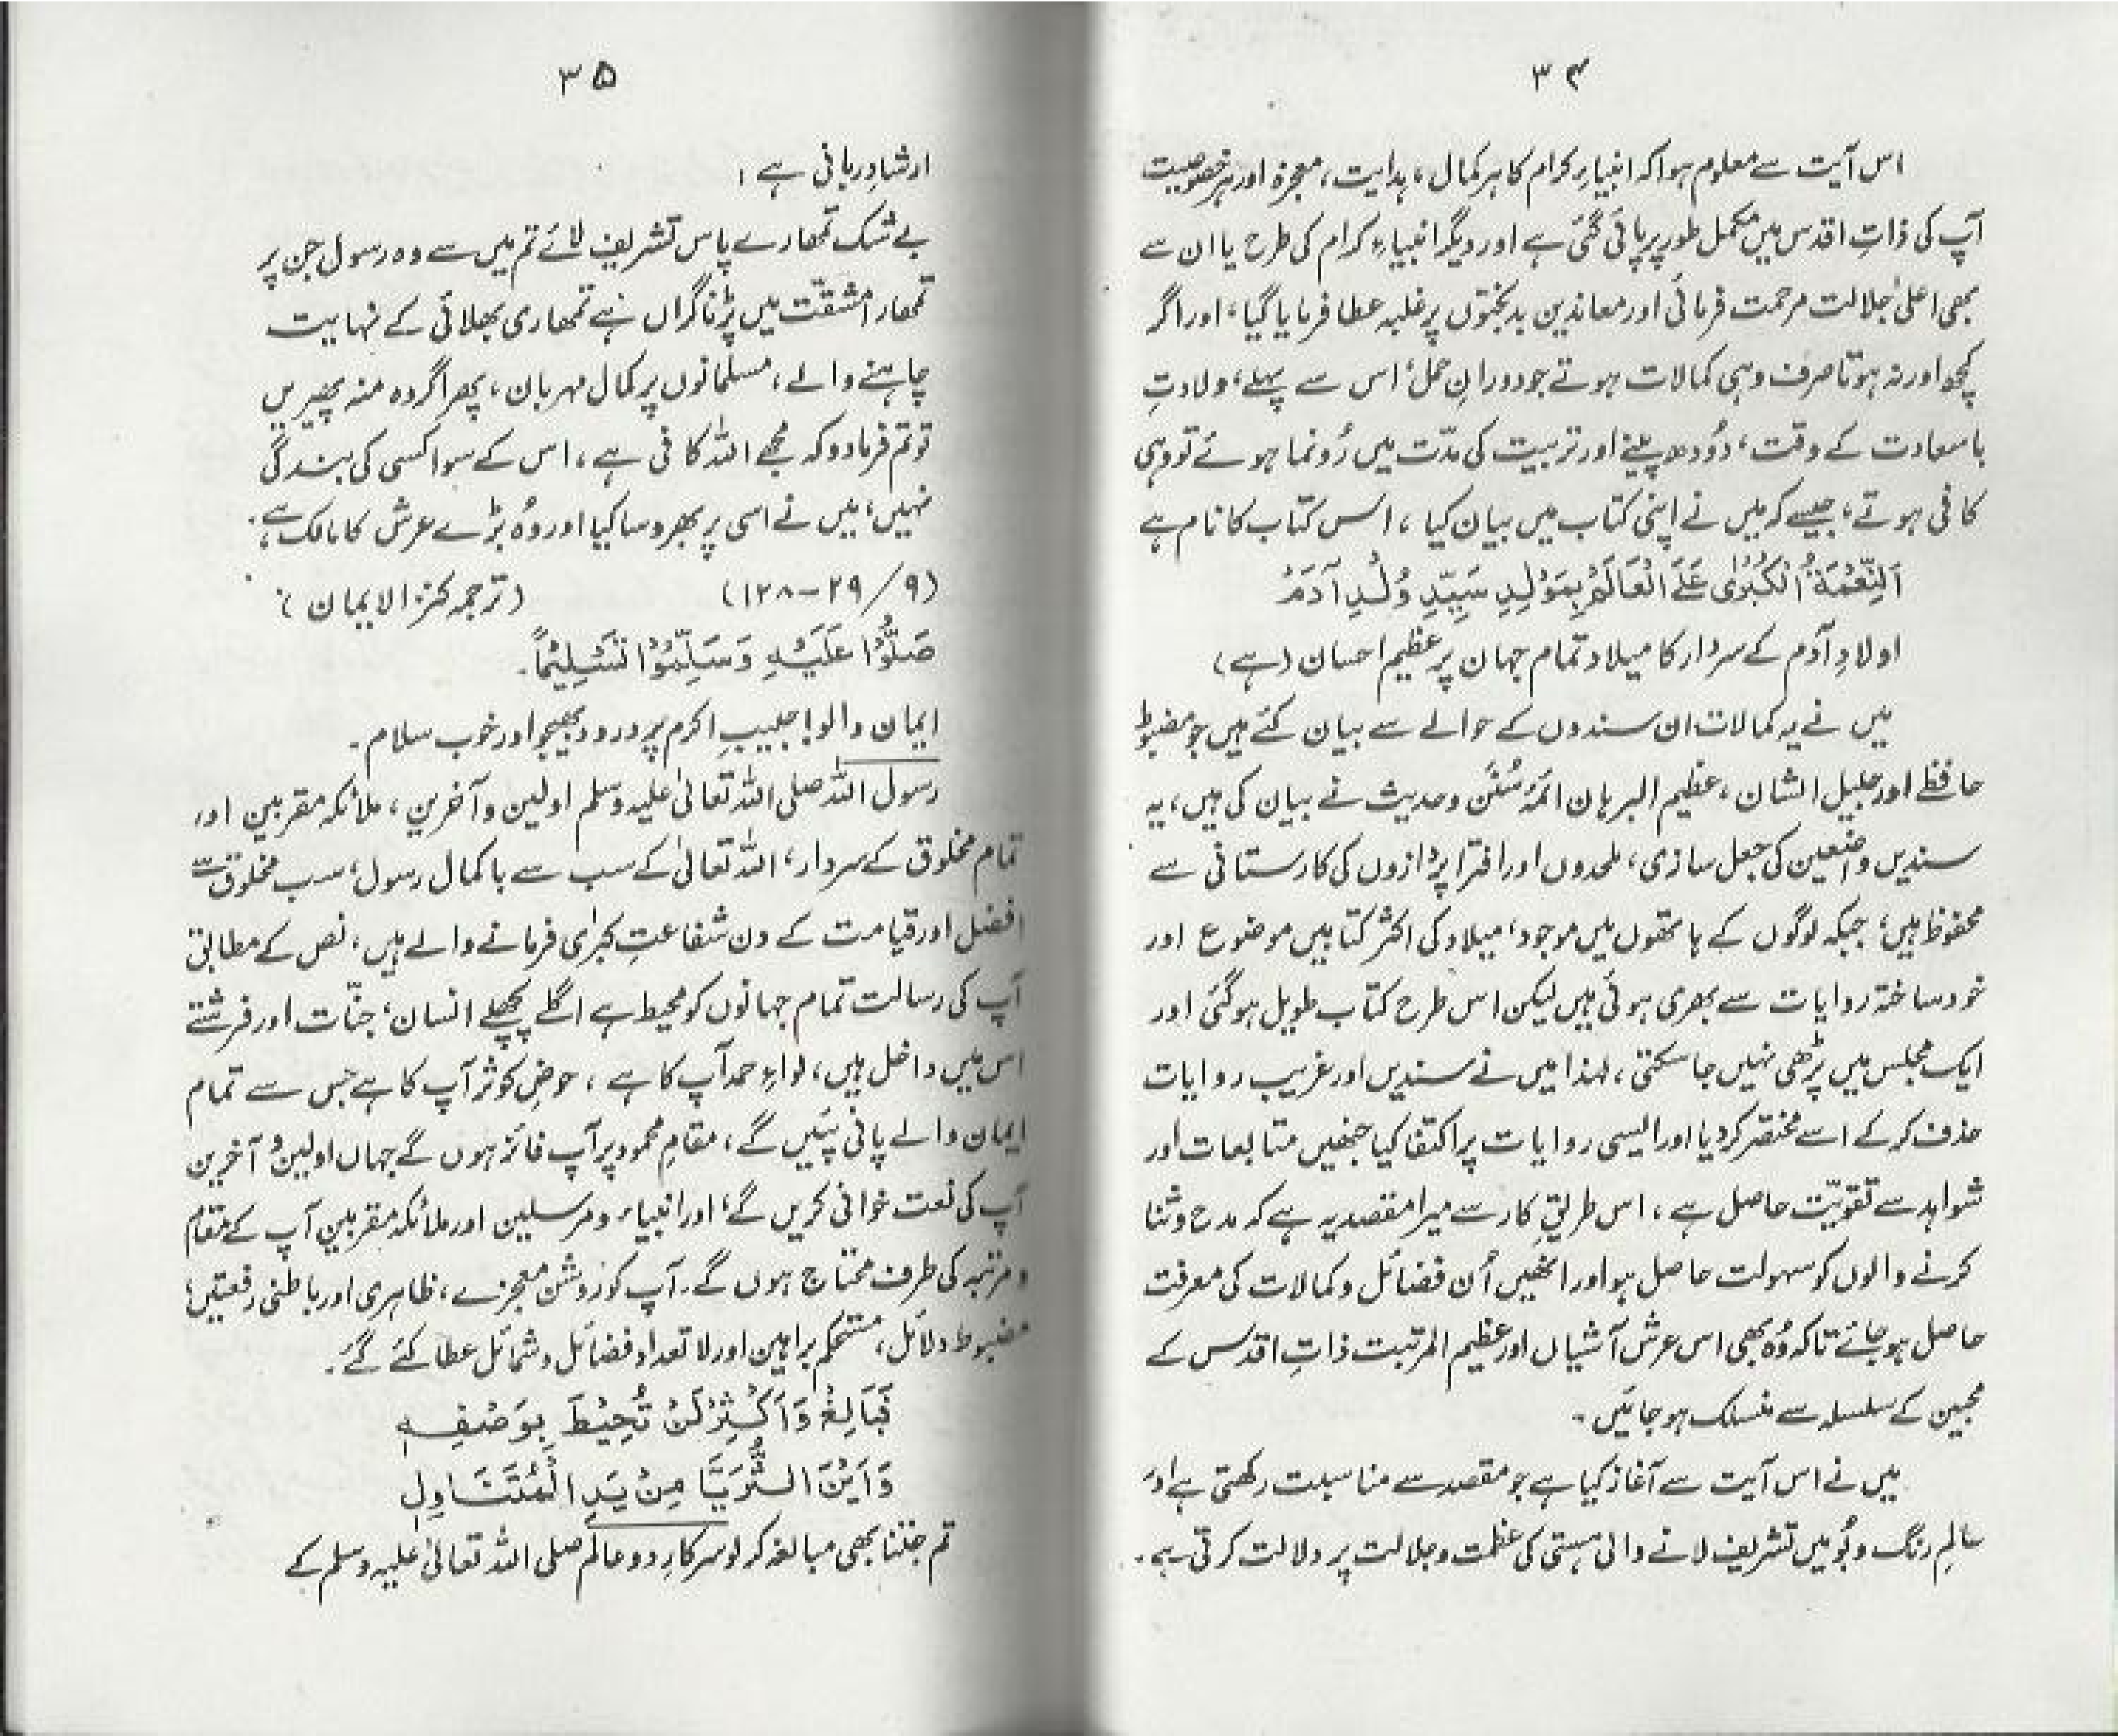 ۳۴
اس آیت سے معلوم ہوا کہ انبیاءِ کرام کا ہر کمال، ہدایت، معجزہ اور ہر خصوصیت
آپ کی ذاتِ اقدس میں مکمل طور پر پائی گئی ہے اور دیگر انبیاءِ کرام کی طرح یا ان سے
بھی اعلیٰ جلالت مرحمت فرمائی اور معاندین بدبختوں پر غلبہ عطا فرمایا گیا، اور اگر
کچھ اور نہ ہوتا صرف وہی کمالات ہوتے جو دورانِ حمل، اس سے پہلے، ولادتِ
باسعادت کے وقت، دُودھ پینے اور تربیت کی مدّت میں رُونما ہوئے تو وہی
کافی ہوتے، جیسے کہ میں نے اپنی کتاب میں بیان کیا، اس کتاب کا نام ہے
اَلنِّعْمَۃُ الْکُبْرٰی عَلَی الْعَالَمِ بِمَوْلِدِ سَیِّدِ وُلْدِ آدَمَ
اولادِ آدم کے سردار کا میلاد تمام جہان پر عظیم احسان (ہے)
میں نے یہ کمالات ان سندوں کے حوالے سے بیان کئے ہیں جو مضبوط
حافظے اور جلیل الشان، عظیم البرہان ائمۂ سُنَن و حدیث نے بیان کی ہیں، یہ
سندیں واضعین کی جعل سازی، ملحدوں اور افترا پردازوں کی کارستانی سے
محفوظ ہیں، جبکہ لوگوں کے ہاتھوں میں موجود، میلاد کی اکثر کتابیں موضوع اور
خود ساختہ روایات سے بھری ہوئی ہیں لیکن اس طرح کتاب طویل ہوگئی اور
ایک مجلس میں پڑھی نہیں جاسکتی، لہٰذا میں نے سندیں اور غریب روایات
حذف کرکے اسے مختصر کردیا اور ایسی روایات پر اکتفا کیا جنھیں متابعات اور
شواہد سے تقویّت حاصل ہے، اس طریقِ کار سے میرا مقصد یہ ہے کہ مدح و ثنا
کرنے والوں کو سہولت حاصل ہو اور انھیں اُن فضائل و کمالات کی معرفت
حاصل ہوجائے تاکہ وُہ بھی اس عرش آشیاں اور عظیم المرتبت ذاتِ اقدس کے
محبین کے سلسلہ سے منسلک ہوجائیں۔
میں نے اس آیت سے آغاز کیا ہے جو مقصد سے مناسبت رکھتی ہے اور
عالمِ رنگ و بُو میں تشریف لانے والی ہستی کی عظمت و جلالت پر دلالت کرتی ہے۔
۳۵
ارشادِ ربانی ہے:
بے شک تمھارے پاس تشریف لائے تم میں سے وہ رسول جن پر
تمھارا مشقّت میں پڑنا گراں ہے تمھاری بھلائی کے نہایت
چاہنے والے، مسلمانوں پر کمال مہربان، پھر اگر وہ منہ پھیریں
تو تم فرمادو کہ مجھے اللہ کافی ہے، اس کے سوا کسی کی بندگی
نہیں، میں نے اسی پر بھروسا کیا اور وُہ بڑے عرش کا مالک ہے۔
(۹/ ۲۹-۱۲۸) (ترجمہ کنز الایمان)
صَلُّوْا عَلَیْہِ وَسَلِّمُوْا تَسْلِیْمًا۔
ایمان والو! حبیبِ اکرم پر درود بھیجو اور خوب سلام۔
رسول اللہ صلی اللہ تعالیٰ علیہ وسلم اولین و آخرین، ملائکہ مقربین اور
تمام مخلوق کے سردار، اللہ تعالیٰ کے سب سے باکمال رسول، سب مخلوق سے
افضل اور قیامت کے دن شفاعتِ کبرٰی فرمانے والے ہیں، نص کے مطابق
آپ کی رسالت تمام جہانوں کو محیط ہے اگلے پچھلے انسان، جنّات اور فرشتے
اس میں داخل ہیں، لواءِ حمد آپ کا ہے، حوضِ کوثر آپ کا ہے جس سے تمام
ایمان والے پانی پئیں گے، مقامِ محمود پر آپ فائز ہوں گے جہاں اولین و آخرین
آپ کی نعت خوانی کریں گے، اور انبیاء و مرسلین اور ملائکہ مقربین آپ کے مقام
و مرتبہ کی طرف محتاج ہوں گے۔ آپ کو روشن معجزے، ظاہری اور باطنی رفعتیں،
مضبوط دلائل، مستحکم براہین اور لاتعداد فضائل و شمائل عطا کئے گئے۔
فَبَالِغْ وَاَکْثِرْ لَنْ تُحِیْطَ بِوَصْفِہٖ
وَاَیْنَ الثُّرَیَّا مِنْ یَدِ الْمُتَنَاوِلِ
تم جتنا بھی مبالغہ کرلو سرکارِ دو عالم صلی اللہ تعالیٰ علیہ وسلم کے